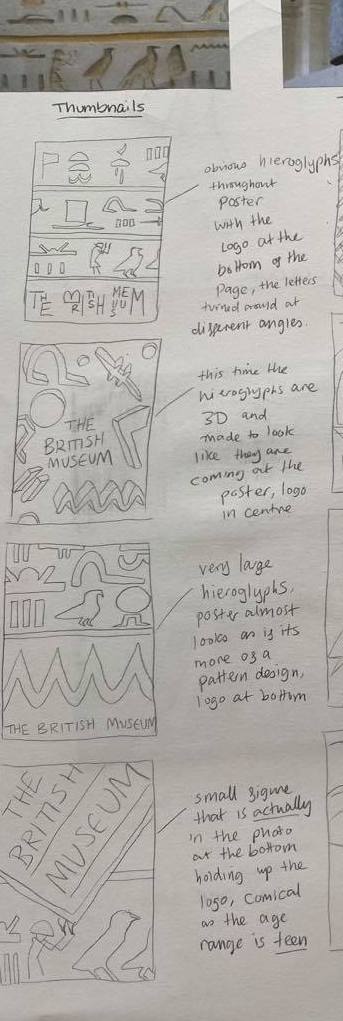 Thumbnails
obvious hieroglyphs
throughout
poster
with the
logo at the
bottom of the
page, the letters
turned around at
different angles.
THE BRITISH MUSEUM
this time the
hieroglyphs are
3D and
made to look
like they are
coming at the
poster, logo
in centre
THE
BRITISH
MUSEUM
very large
hieroglyphs,
poster almost
looks as if its
more of a
pattern design,
logo at bottom
THE BRITISH MUSEUM
small figure
that is actually
in the photo
at the bottom
holding up the
logo, comical
as the age
range is teen
THE
BRITISH
MUSEUM